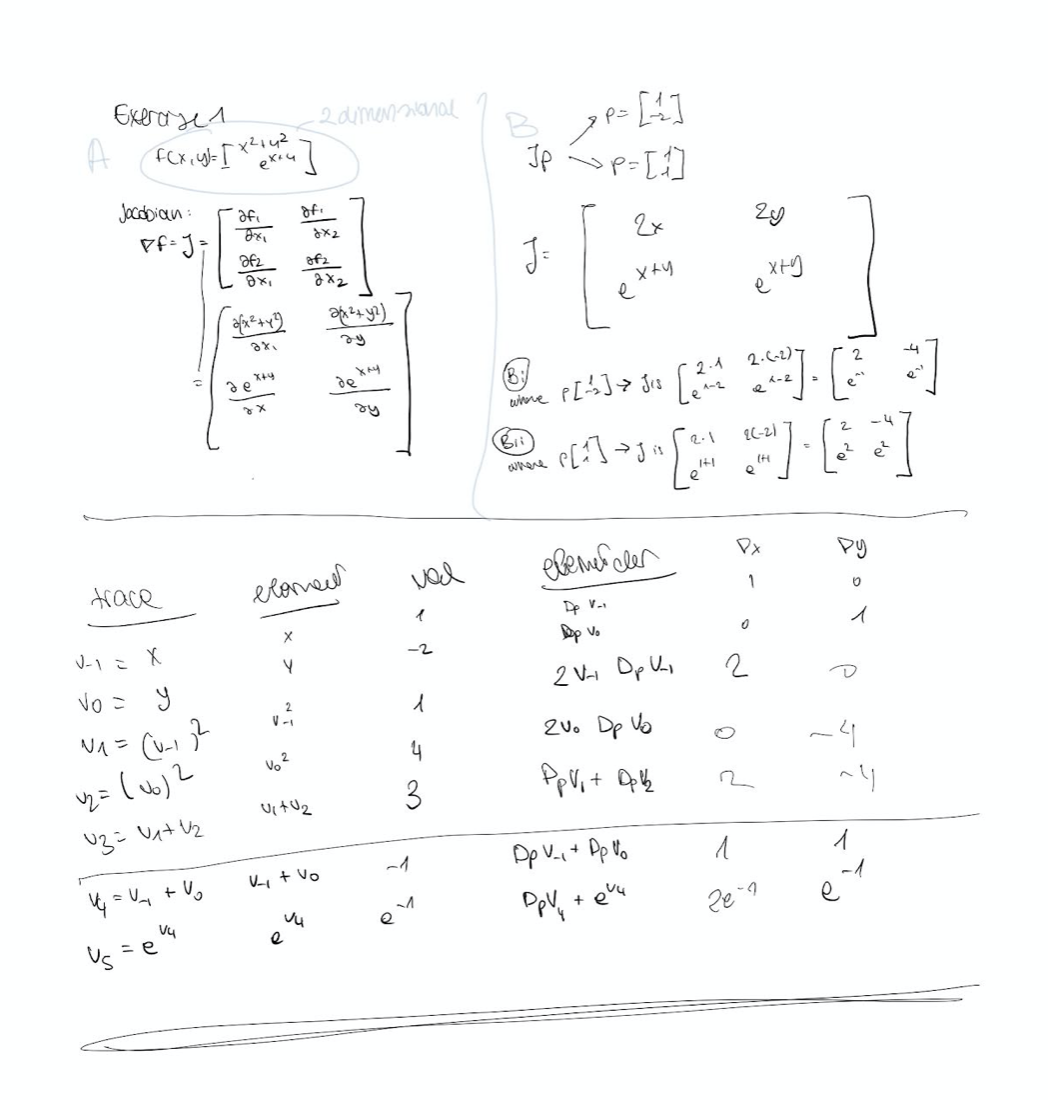 Exercise 1
2 dimensional
A
f(x,y)=[x²+y²
e^{x+y}]
Jacobian:
∇f=J=[∂f₁/∂x₁ ∂f₁/∂x₂
∂f₂/∂x₁ ∂f₂/∂x₂]
=[∂(x²+y²)/∂x₁ ∂(x²+y²)/∂y
∂e^{x+y}/∂x ∂e^{x+y}/∂y]
B
Jp
p=[1
-2]
p=[1
1]
J=[2x 2y
e^{x+y} e^{x+y}]
Bi
where p[1 -2] → J is [2·1 2·(-2)
e^{1-2} e^{1-2}] = [2 -4
e^{-1} e^{-1}]
Bii
where p[1 1] → J is [2·1 2(-2)
e^{1+1} e^{1+1}] = [2 -4
e² e²]
trace element val ∇x ∇y
v₋₁ = x x 1 Dp v₋₁ 1 0
v₀ = y y -2 Dp v₀ 0 1
v1 = (v₋₁)² v₋₁² 1 2v₋₁ Dp v₋₁ 2 0
v2 = (v₀)² v₀² 4 2v₀ Dp v₀ 0 -4
v3 = v1+v2 v₁+v₂ 3 Dp v₁ + Dp v₂ 2 -4
v4 = v₋₁ + v₀ v₋₁ + v₀ -1 Dp v₋₁ + Dp v₀ 1 1
v5 = e^{v4} e^{v4} e^{-1} Dp v₄ + e^{v4} 2e^{-1} e^{-1}